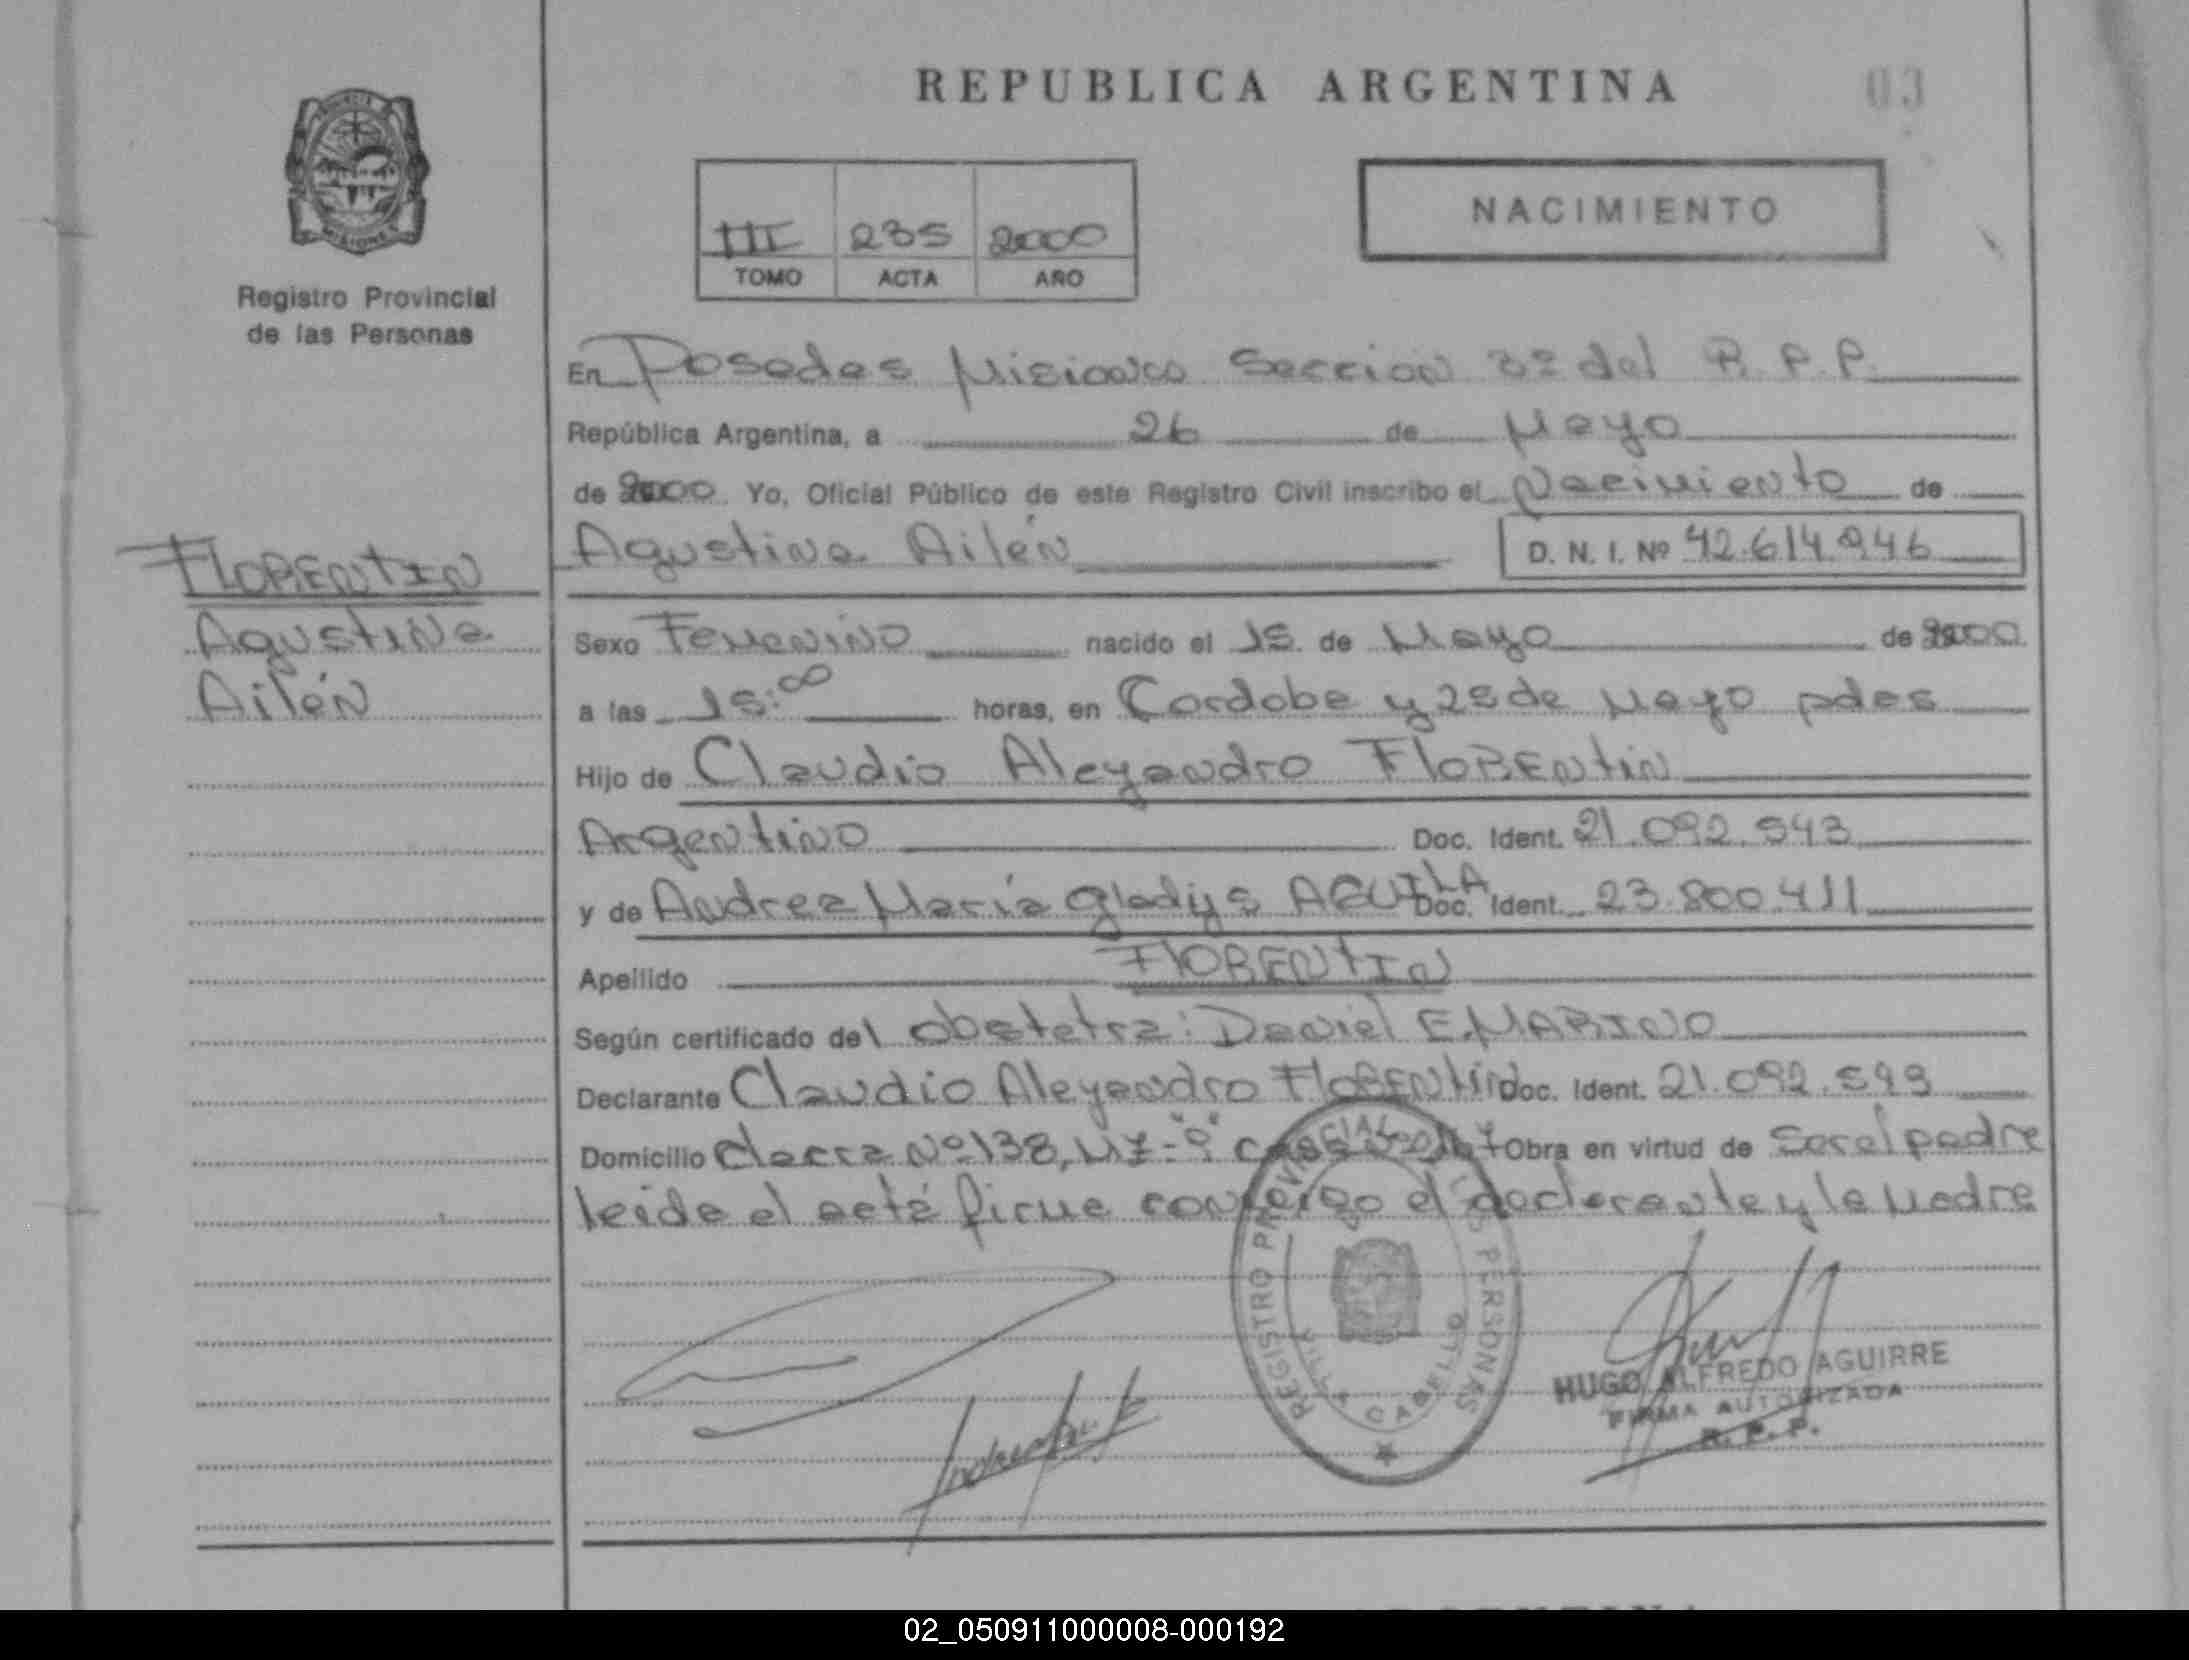 REPUBLICA ARGENTINA
03
MISIONES
Registro Provincial
de las Personas
III 235 2000
TOMO ACTA AÑO
NACIMIENTO
En Posadas Misiones Sección 3º del R.P.P.
República Argentina, a 26 de Mayo
de 2000 Yo, Oficial Público de este Registro Civil inscribo el Nacimiento de
Agustina Ailén D. N. I. Nº 42.614.946
FLORENTIN
Agustina
Ailén
Sexo Femenino nacido el 15 de Mayo de 2000
a las 15:00 horas, en Cordoba y 25 de Mayo pdas
Hijo de Claudio Aleyandro FLORENtin
Argentino Doc. Ident. 21.092.543
y de Andrea María Gladys AGUILA Doc. Ident. 23.800.411
Apellido FLORENTIN
Según certificado del obstetra: Daniel E. MARINO
Declarante Claudio Aleyandro FLORENtin Doc. Ident. 21.092.543
Domicilio chacra Nº 138, Mz - casa Obra en virtud de ser el padre
leida el acta firma conmigo el declarante y la Madre
REGISTRO PROVINCIAL PERSONAS
CABELLO
HUGO ALFREDO AGUIRRE
FIRMA AUTORIZADA
R. P. P.
02_050911000008-000192